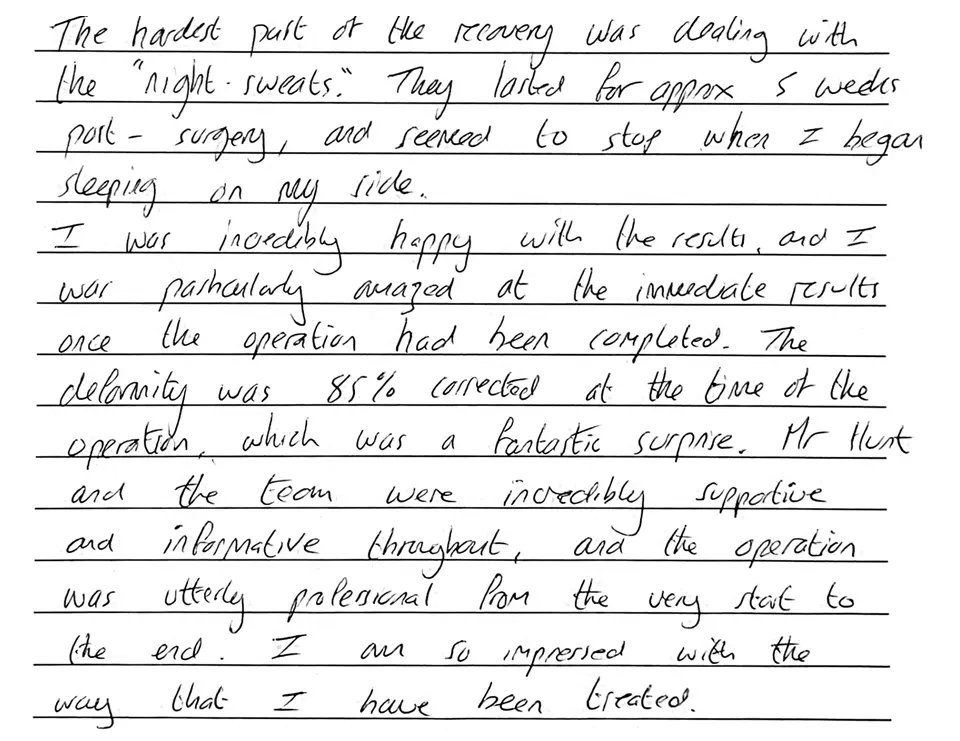 The hardest part of the recovery was dealing with
the "night-sweats." They lasted for approx 5 weeks
post-surgery, and seemed to stop when I began
sleeping on my side.
I was incredibly happy with the results, and I
was particularly amazed at the immediate results
once the operation had been completed. The
deformity was 85% corrected at the time of the
operation, which was a fantastic surprise. Mr Hunt
and the team were incredibly supportive
and informative throughout, and the operation
was utterly professional from the very start to
the end. I am so impressed with the
way that I have been treated.